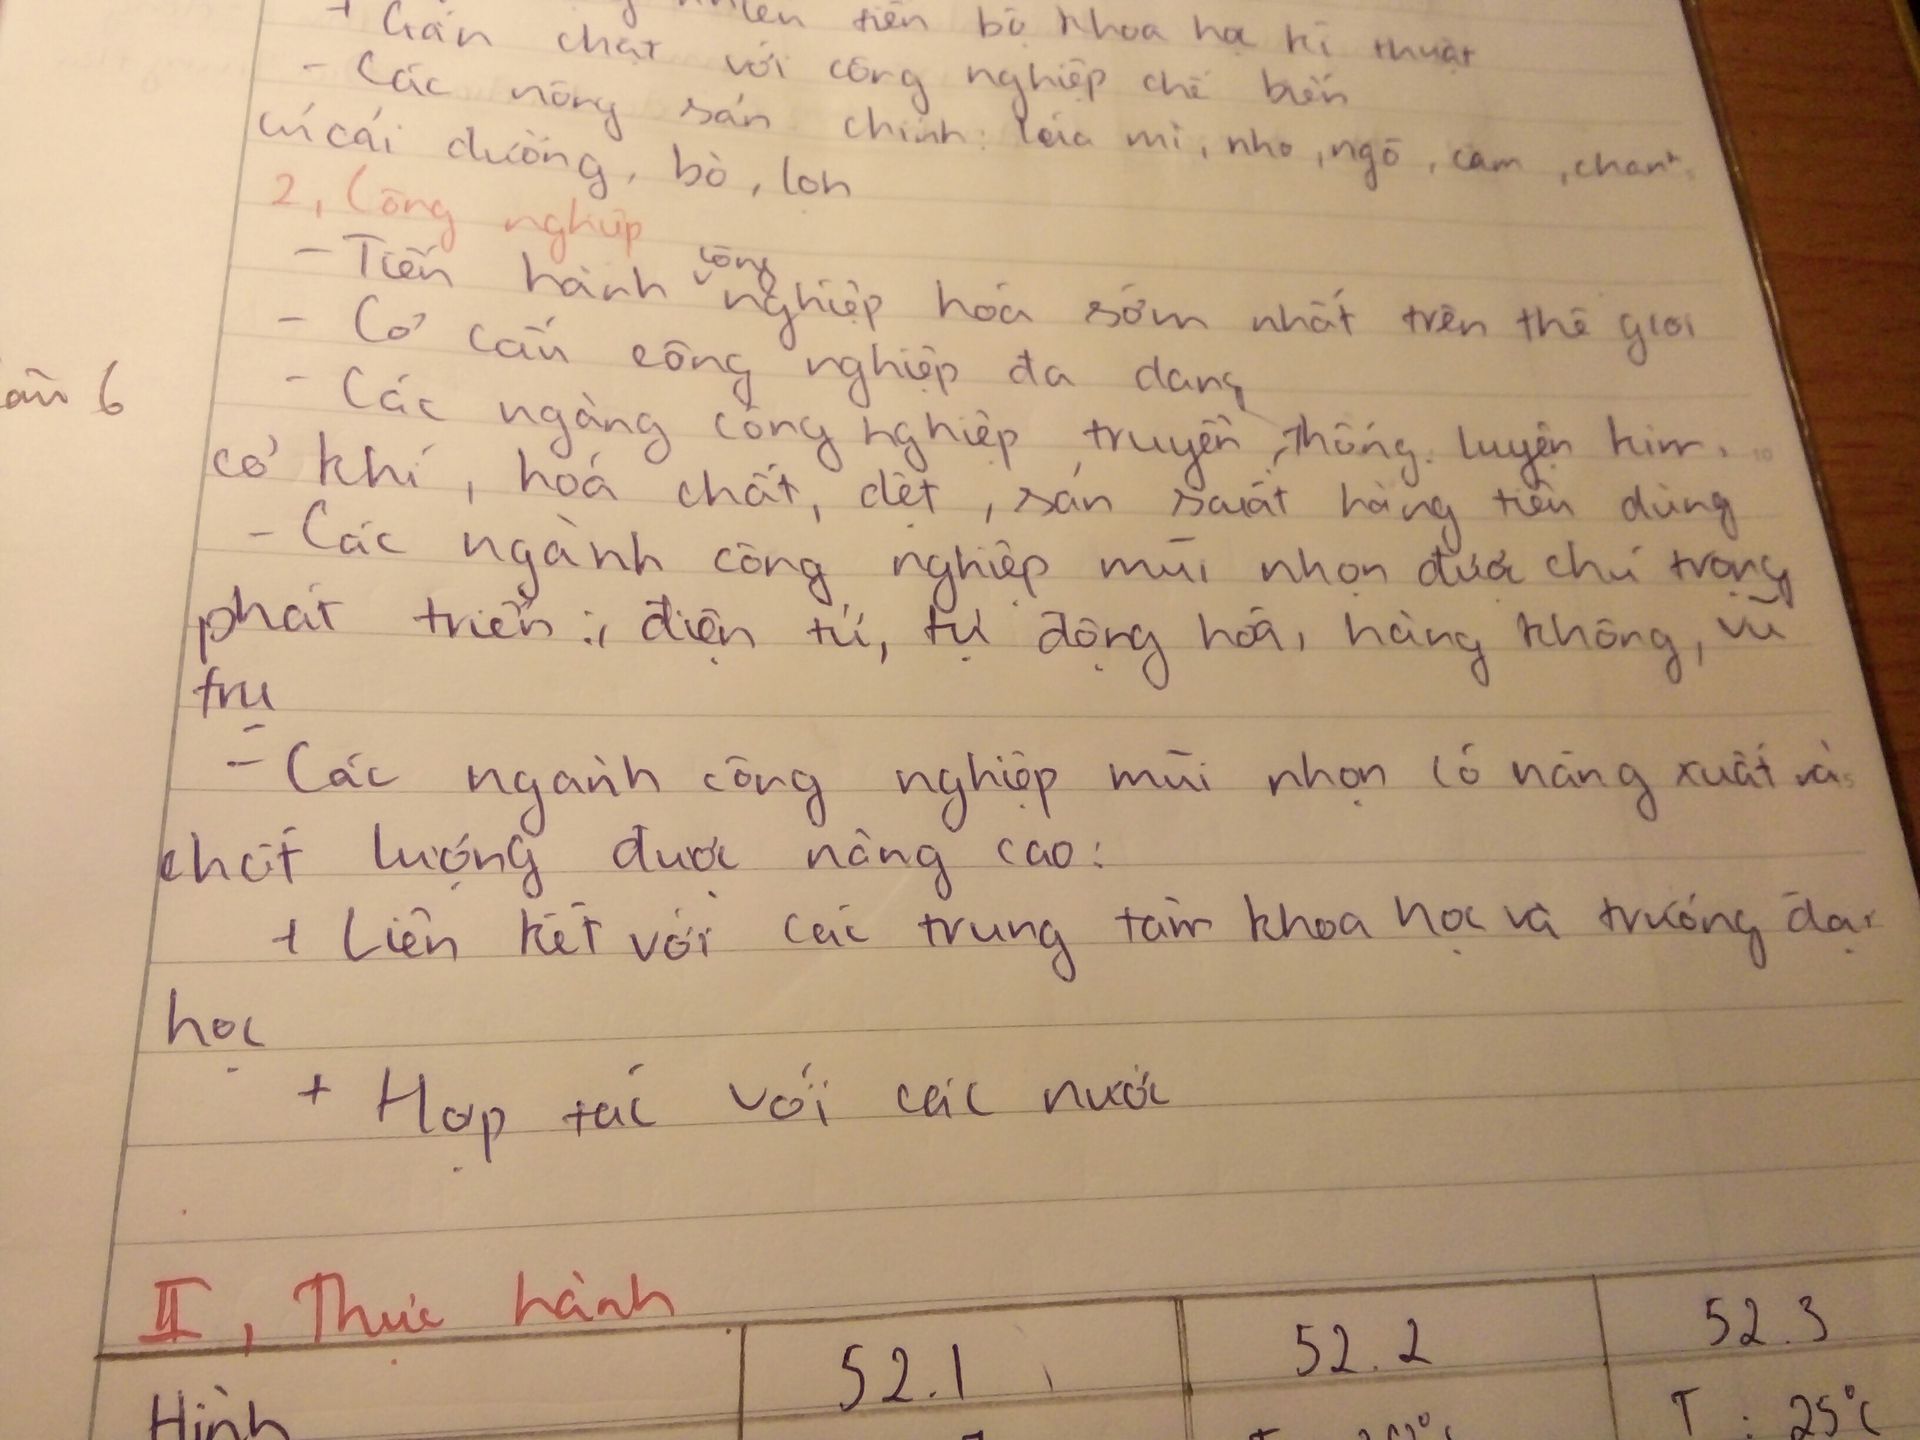 tiến bộ khoa học kĩ thuật
+ Gắn chặt với công nghiệp chế biến
- Các nông sản chính: lúa mì, nho, ngô, cam, chanh,
củ cải đường, bò, lợn
2, Công nghiệp
- Tiến hành công nghiệp hóa sớm nhất trên thế giới
- Cơ cấu công nghiệp đa dạng
- Các ngàng công nghiệp truyền thống: luyện kim,
cơ khí, hoá chất, dệt, sản suất hàng tiên dùng
- Các ngành công nghiệp mũi nhọn được chú trọng
phát triển: điện tử, tự động hoá, hàng không, vũ
trụ
- Các ngành công nghiệp mũi nhọn có năng xuất và
chất lượng được nâng cao:
+ Liên kết với các trung tâm khoa học và trường đại
học
+ Hợp tác với các nước
II, Thực hành
52.1
52.2
52.3
Hình
T : 25°C